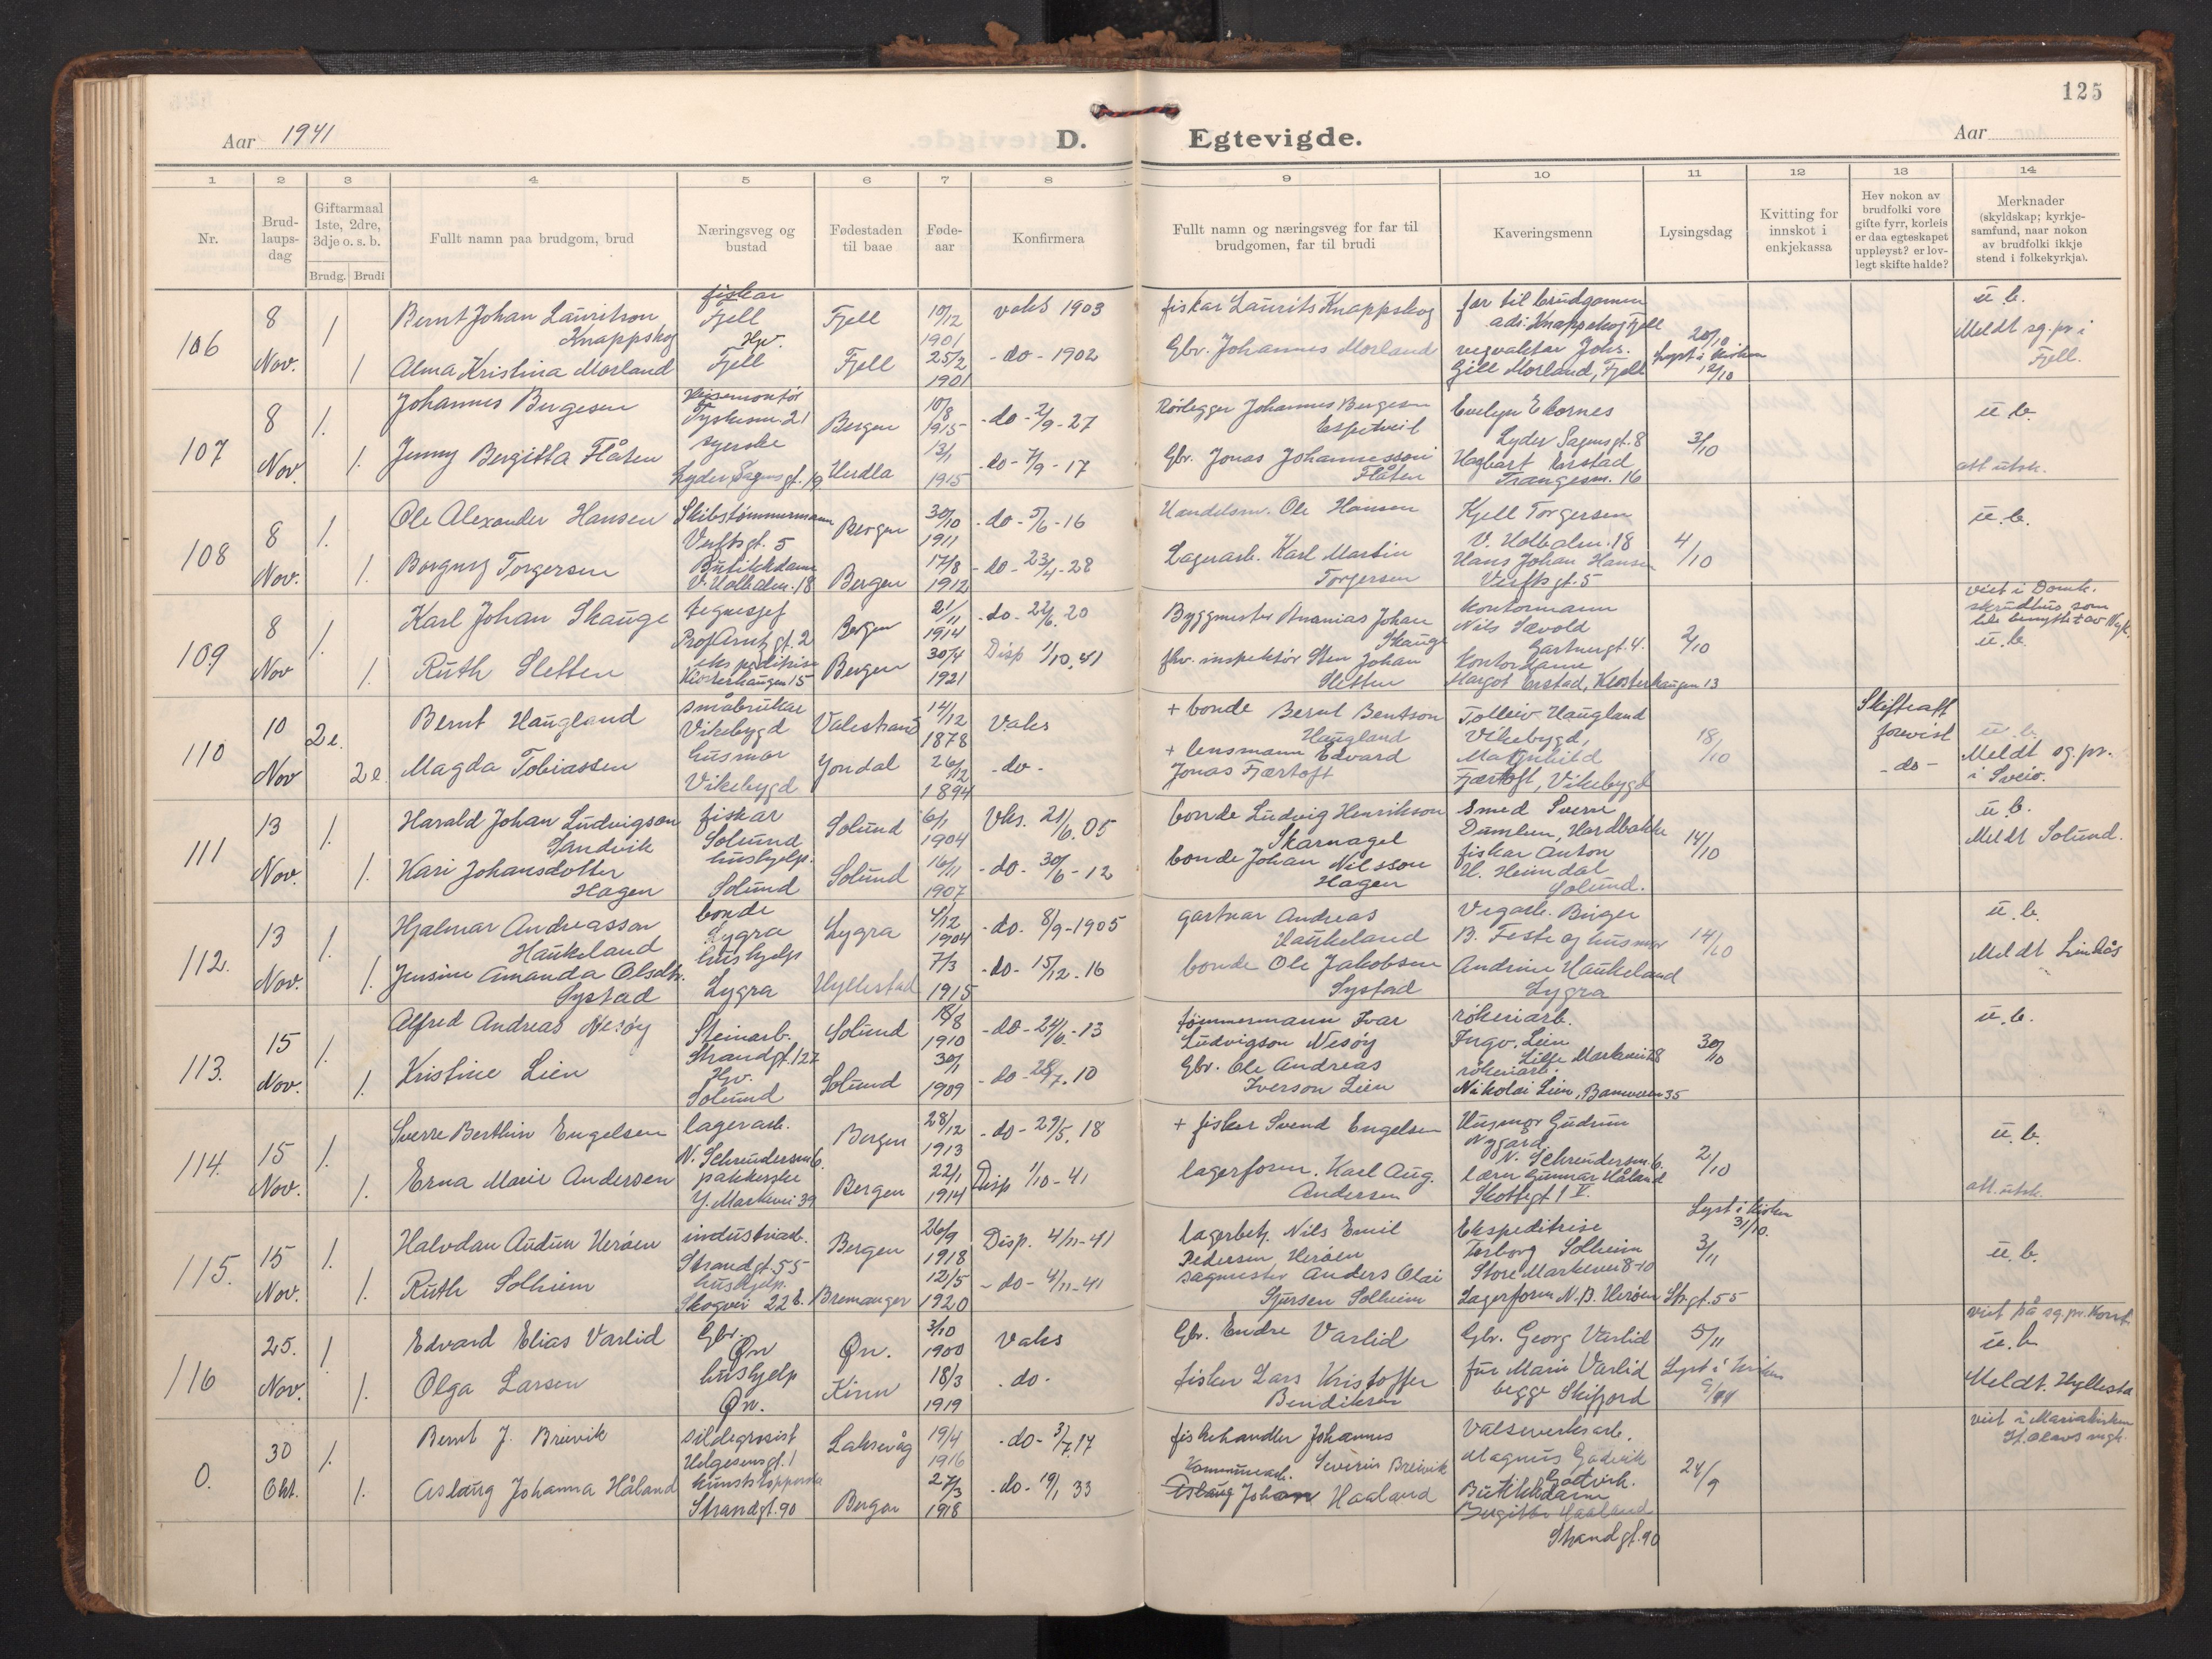 125
Aar 1941
D.
Egtevigde.
Aar
1 2 3 4 5 6 7 8 9 10 11 12 13 14
Nr.
Brud-
laups-
dag
Giftarmaal
1ste, 2dre,
3dje o. s. b.
Brudg. Brudi
Fullt namn paa brudgom, brud
Næringsveg og
bustad
Fødestaden
til baae
Føde-
aar
Konfirmera
Fullt namn og næringsveg for far til
brudgomen, far til brudi
Kaveringsmenn
Lysingsdag
Kvitting for
innskot i
enkjekassa
Hev nokon av
brudfolki vore
gifte fyrr, korleis
er daa egteskapet
uppløyst? er lov-
legt skifte halde?
Merknader
(skyldskap; kyrkje-
samfund, naar nokon
av brudfolki ikkje
stend i folkekyrkja).
106
8
Nov.
1
Bernt Johan Lauritson
Knappskog
fiskar
Fjell
Fjell
10/12
1901
vaks 1903
fiskar Laurits Knappskog
far til brudgomen
adr. Knappskog Fjell
20/10
ü. b.
Meldt sg.pr i
Fjell.
1
Alma Kristina Morland
Hv.
Fjell
Fjell
25/2
1901
- do - 1902
Gbr. Johannes Morland
vegvaktar Johs.
Gill Morland, Fjell
Lyst i kirken
12/10
107
8
Nov.
1.
Johannes Birgesen
Heisemontör
Tyskesm. 21
Bergen
10/8
1915
- do - 2/9 - 27
Rörlegger Johannes Bergesen
Espetveit
Evelyn Ekornes
Lyder Sagensgt. 8
3/10
ü. b.
1.
Jenny Bergitta Flåten
syerske
Lyder Sagensgt. 19
Herdla
13/1
1915
- do - 7/9 - 17
Gbr. Jonas Johannesson
Flåten
Hagbart Erstad
Trangesm. 16
att. utsk.
108
8
Nov.
1.
Ole Alexander Hansen
Skibstømmermann
Verftsgt. 5
Bergen
30/10
1911
- do - 5/6 - 16
Handelsm. Ole Hansen
Kjell Torgersen
V. Holbalm. 18
4/10
ü. b.
1.
Borgny Torgersen
Butikkdame
V. Holbalm. 18
Bergen
17/8
1912
- do - 23/4 - 28
Lagerarb. Karl Martin
Torgersen
Hans Johan Hansen
Verftsgt. 5
109
8
Nov
1.
Karl Johan Skauge
tegnesjef
Prof. Arntz gt. 2
Bergen
21/11
1914
- do - 22/6. 20
Byggmester Ananias Johan
Skauge
kontormann
Nils Sævold
Gartnergt. 4.
2/10
viet i Domk.
skrudhus som
ble benyttet av Nyk.
ü. b.
1.
Ruth Sletten
ekspeditrise
Klosterhaugen 15
Bergen
30/4
1921
Disp 1/10. 41
fhv. inspektör Sten Johan
Sletten
Kontordame
Margot Erstad, Klosterhaugen 13
110
10
Nov
2 e.
Bernt Haugland
småbrukar
Vikebygd
Valestrand
14/12
1878
Vaks
+ bonde Bernt Bentson
Haugland
Tolleiv Haugland
Vikebygd,
18/10
Skifteatt
forevist
ü. b.
Meldt sg.pr.
i Sveio.
2 e.
Magda Tobiassen
husmor
Vikebygd
Jondal
26/12
1894
- do -
+ lensmann Edvard
Jonas Fjærtoft
Matinhild
Fjærtoft, Vikebygd
- do -
111
13
Nov.
1.
Harald Johan Ludvigson
Sandvik
fiskar
Solund
Solund
6/1
1904
Vks. 21/6. 05
bonde Ludvig Henrikson
Skarnagel
Smed Sverre
Dumben, Hardbakke
14/10
ü. b.
Meldt Solund.
1.
Kari Johansdotter
Hagen
hushjelp.
Solund
Solund
16/11
1907
- do - 30/6 - 12
bonde Johan Nilsson
Hagen
fiskar Anton
H. Heimdal
Solund.
112.
13
Nov.
1.
Hjalmar Andreasson
Haukeland
bonde
Lygra
Lygra
4/12
1904
- do - 8/9 - 1905
gartnar Andreas
Haukeland
Vegarb. Birger
B. Feste og husmor
14/10
ü. b.
Meldt Lindås
1.
Jensine Amanda Olsdtr.
Systad
hushjelp
Lygra
Hyllestad
7/3
1915
- do - 15/12 - 16
bonde Ole Jakobsen
Systad
Andrine Haukeland
Lygra
113.
15
Nov.
1.
Alfred Andreas Nesöy
Steinarb.
Strandgt. 127
Solund
18/8
1910
- do - 24/6 - 13
tömmermann Ivar
Ludvigson Nesöy
rökeriarb.
Ingv. Lein
Lille Markevei 28
30/10
ü. b.
1.
Kristine Lien
Hv.
Solund
Solund
30/1
1909
- do - 28/7. 10
Gbr. Ole Andreas
Iverson Lien
rökeriarb.
Nikolai Lien, Banveien 35
114.
15
Nov.
1.
Sverre Berthin Engelsen
lagerarb.
N. Schreudersm 6.
Bergen
28/12
1913
- do - 29/5. 18
+ fisker Svend Engelsen
Husmor Gudrun
Nygard
N. Schreudersm. 6.
2/10
ü. b.
1.
Erna Marie Andersen
pakkerske
Y. Markvei 39
Bergen
22/1
1914
Disp 1/10 - 41
lagerform. Karl Aug.
Andersen
lærer Gunnar Håland
Skottegt 1 V.
att. utsk.
115.
15
Nov.
1.
Halvdan Audun Heröen
industriarb.
Strandgt. 55
Bergen
26/9
1918
Disp. 4/11 - 41
lagerbetj. Nils Emil
Pedersen Heröen
Ekspeditrise
Torborg Solheim
Store Markevei 8-10
Lyst i kirken
31/10.
3/11
ü. b.
1.
Ruth Solheim
hushjelp.
Skogvei 22 b.
Bremanger
12/5
1920
- do - 4/11 - 41
sagmester Anders Olai
Sjursen Solheim
Lagerform N. B. Heröen Str.gt. 55
116
25.
Nov.
1.
Edvard Elias Varlid
Gbr.
Øn
Øn.
3/10
1900
Vaks
Gbr. Endre Varlid
Gbr. Georg Varlid
5/11
viet på sg.pr. kont.
ü. b
1.
Olga Larsen
hushjelp
Øn.
Kinn
18/3
1919
. do .
fisker Lars Kristoffer
Bendiksen
fru Marie Varlid
begge Skifjord
Lyst i kirken
9/11
Meldt. Hyllesta
0.
30
Okt.
1.
Bernt J. Breivik
sildegrosist
Helgesensgt. 1
Laksevåg
19/4
1916
- do - 3/7. 17
fiskehandler Johannes
Severin Breivik
Valseverksarb.
Magnus Gadvik
Godtvik.
24/9
viet i Mariakirken
St. Olavs mgh.
1.
Aslaug Johanna Håland
kunststopperske
Strandgt. 90
Bergen
27/3
1918
- do - 19/1 33
Kommunearb.
Aslaug Johan Haaland
Butikkdame
Bergitte Haaland
Strandgt. 90